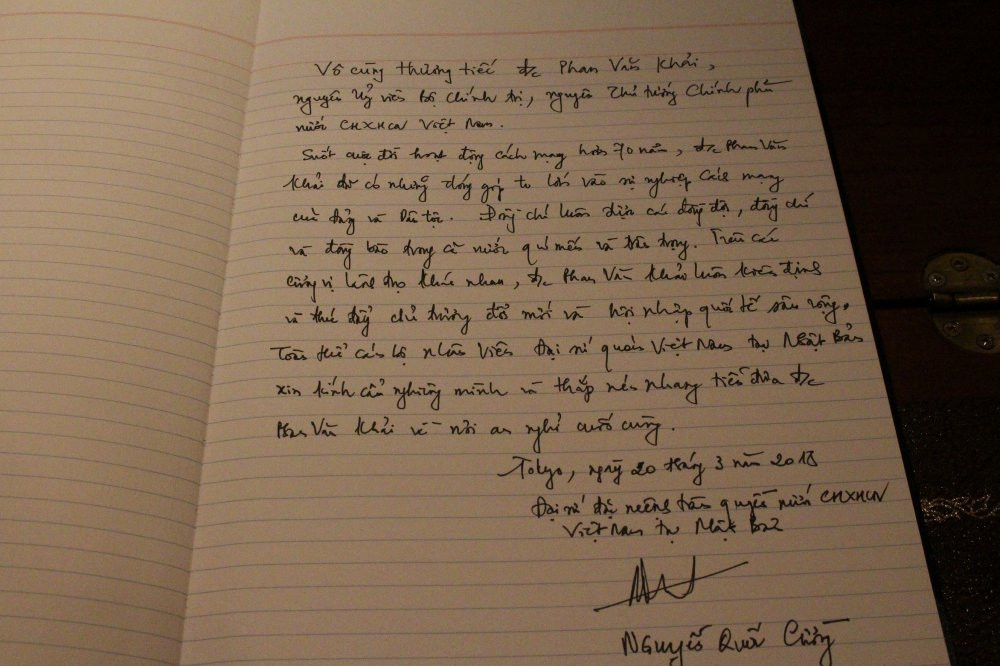 Vô cùng thương tiếc đ/c Phan Văn Khải,
nguyên Uỷ viên Bộ Chính trị, nguyên Thủ tướng Chính phủ
nước CHXHCN Việt Nam.
Suốt cuộc đời hoạt động cách mạng hơn 70 năm, đ/c Phan Văn
Khải đã có những đóng góp to lớn vào sự nghiệp Cách mạng
của Đảng và Dân tộc. Đồng chí luôn được các đồng đội, đồng chí
và đồng bào trong cả nước quí mến và trân trọng. Trên các
cương vị lãnh đạo khác nhau, đ/c Phan Văn Khải luôn kiên định
và thúc đẩy chủ trương đổi mới và hội nhập quốc tế sâu rộng.
Toàn thể cán bộ nhân viên Đại sứ quán Việt Nam tại Nhật Bản
xin kính cẩn nghiêng mình và thắp nén nhang tiễn đưa đ/c
Phan Văn Khải về nơi an nghỉ cuối cùng.
Tokyo, ngày 20 tháng 3 năm 2018
Đại sứ đặc mệnh toàn quyền nước CHXHCN
Việt Nam tại Nhật Bản
Nguyễn Quốc Cường